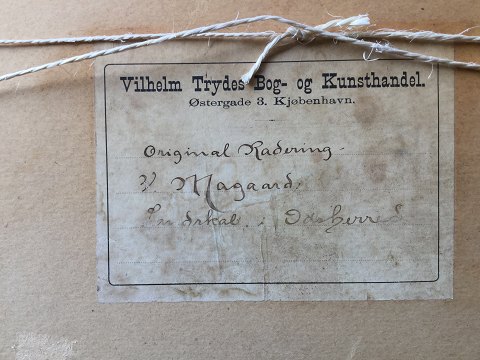 Vilhelm Trydes Bog- og Kunsthandel.
Østergade 3. Kjøbenhavn.
Original Radering
V Magaard,
i Odsherred